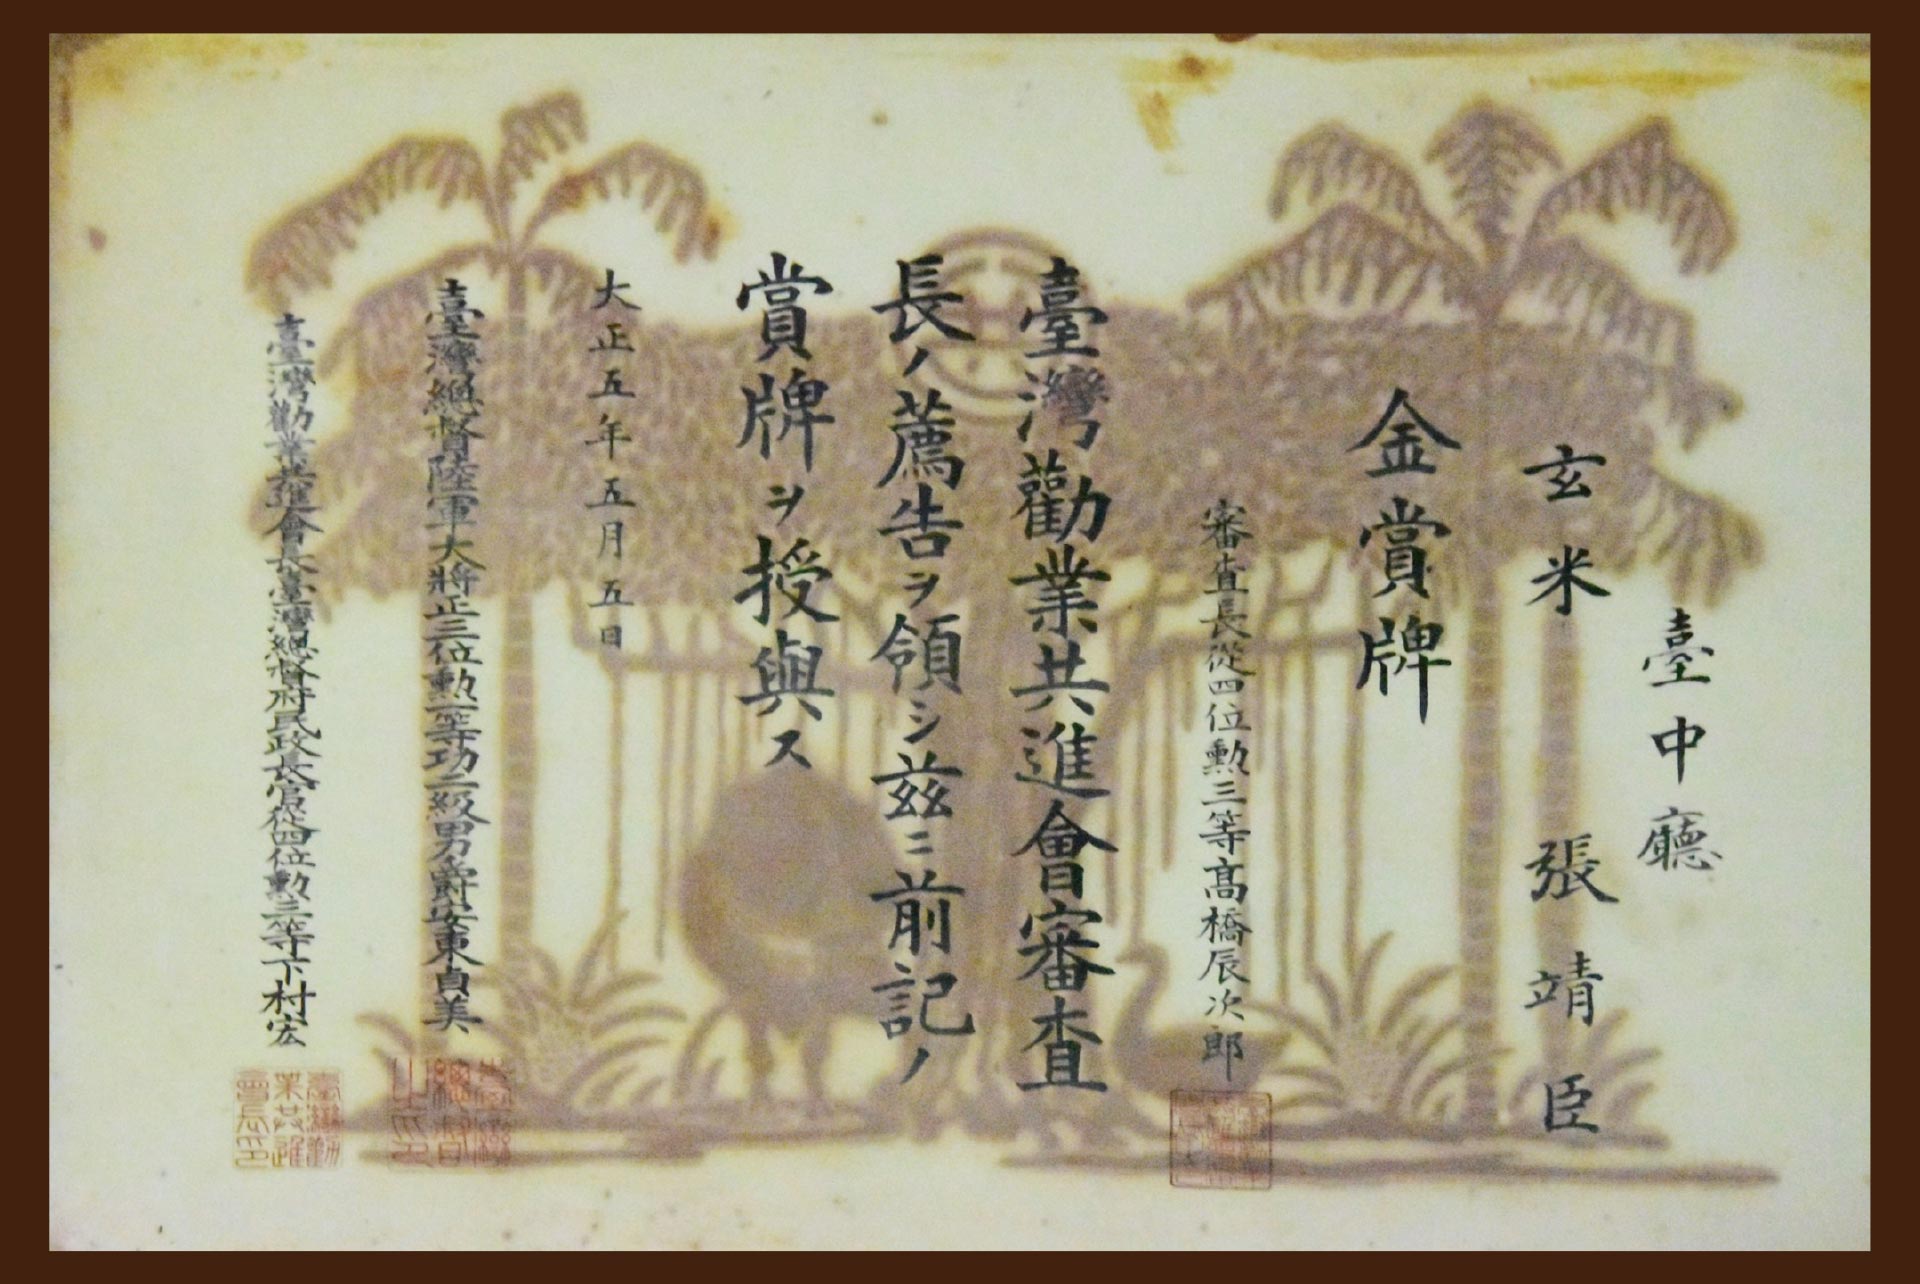 臺中廳
玄米 張靖臣
金賞牌
審査長從四位勲三等高橋辰次郎
臺灣勸業共進會審査
長ノ薦告ヲ領シ茲ニ前記ノ
賞牌ヲ授與ス
大正五年五月五日
臺灣總督陸軍大將正三位勲一等功二級男爵安東貞美
臺灣勸業共進會長臺灣總督府民政長官從四位勲三等下村宏
臺灣總督之印
臺灣勸業共進會長之印